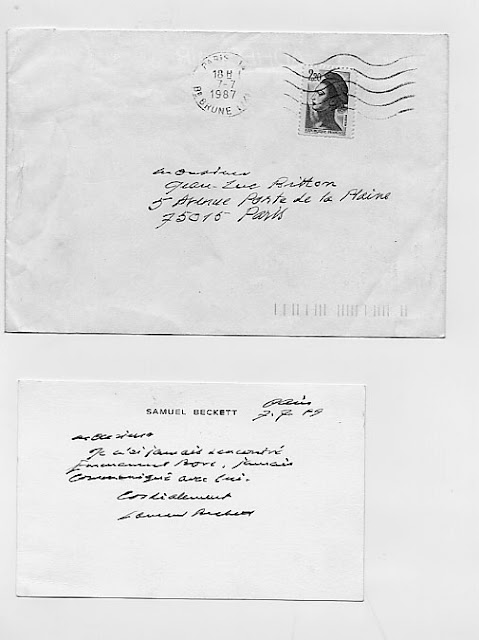 PARIS
18 H
7-7
1987
BD BRUNE
2,20
Monsieur
Jean-Luc Bitton
5 Avenue Porte de la Plaine
75015 Paris
SAMUEL BECKETT
Paris
7.7
Monsieur
Je n'ai jamais rencontré
Emmanuel Bove, jamais
communiqué avec lui.
Cordialement
Samuel Beckett